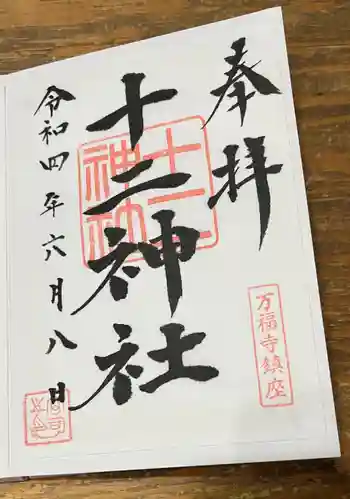 奉拝
万福寺鎮座
十二神社
十二神社
令和四年六月八日